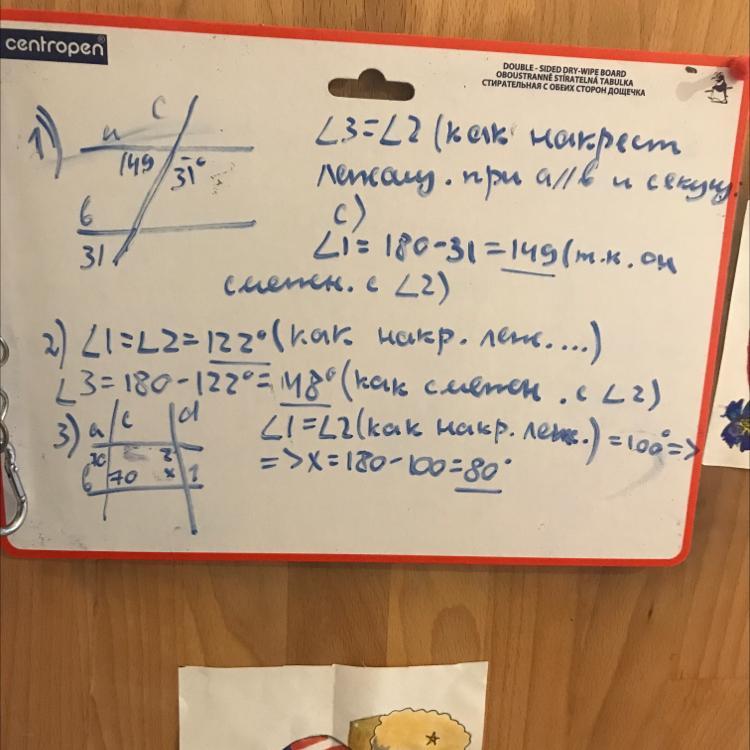 centropen®
DOUBLE - SIDED DRY-WIPE BOARD
OBOUSTRANNĚ STÍRATELNÁ TABULKA
СТИРАТЕЛЬНАЯ С ОБЕИХ СТОРОН ДОЩЕЧКА
1)
c
a
149
31°
в
31
∠3=∠2 (как накрест
лежащ. при a//в и секущ.
c)
∠1= 180-31=149 (т.к. он
смежн. с ∠2)
2) ∠1=∠2=122° (как накр. леж....)
∠3=180-122°=148° (как смежн. с ∠2)
3) a c d
70 2
в 70 x 1
∠1=∠2 (как накр. леж.)=100° =>
=> x=180-100=80°